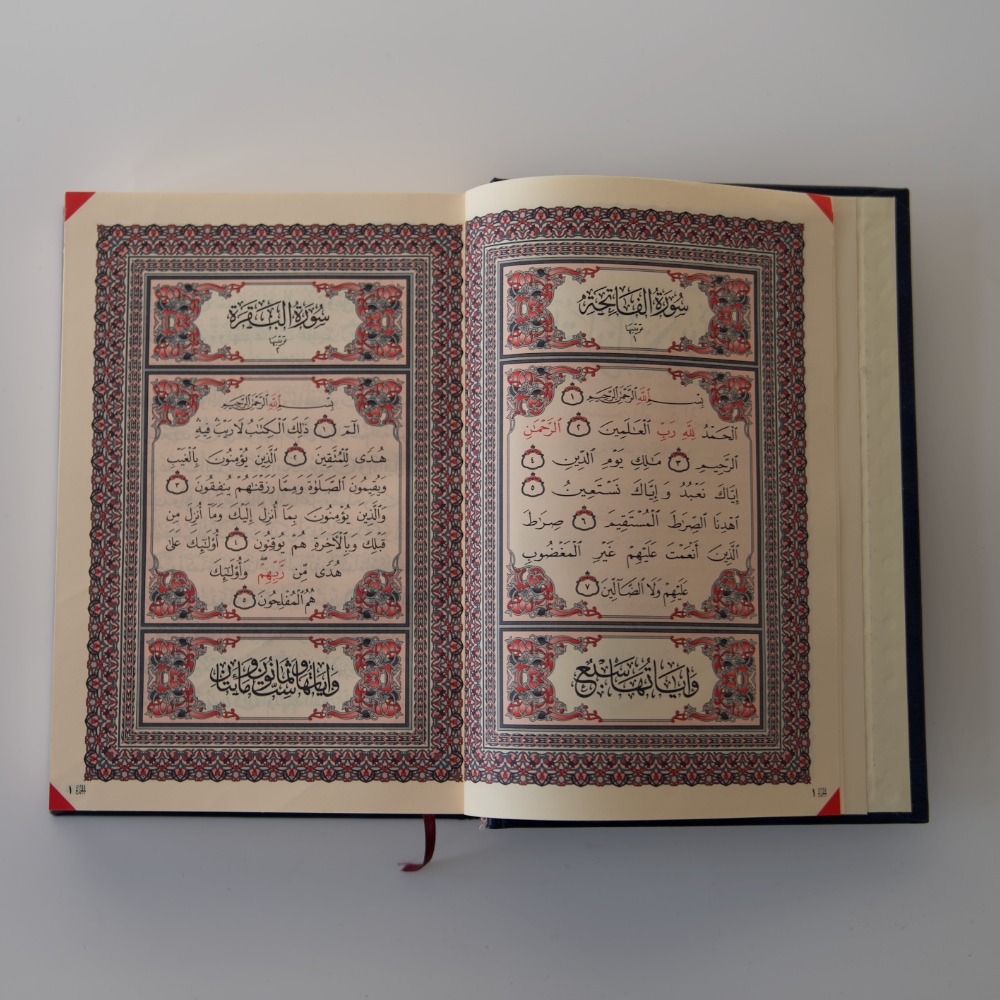 سُورَةُ الفَاتِحَةِ
ترتيبها
١
بِسْمِ ٱللَّهِ ٱلرَّحْمَٰنِ ٱلرَّحِيمِ ١
ٱلْحَمْدُ لِلَّهِ رَبِّ ٱلْعَٰلَمِينَ ٢ ٱلرَّحْمَٰنِ
ٱلرَّحِيمِ ٣ مَٰلِكِ يَوْمِ ٱلدِّينِ ٤
إِيَّاكَ نَعْبُدُ وَإِيَّاكَ نَسْتَعِينُ ٥
ٱهْدِنَا ٱلصِّرَٰطَ ٱلْمُسْتَقِيمَ ٦ صِرَٰطَ
ٱلَّذِينَ أَنْعَمْتَ عَلَيْهِمْ غَيْرِ ٱلْمَغْضُوبِ
عَلَيْهِمْ وَلَا ٱلضَّآلِّينَ ٧
وَآيَاتُهَا سَبْعٌ
الجزء ١
سُورَةُ البَقَرَةِ
ترتيبها
٢
بِسْمِ ٱللَّهِ ٱلرَّحْمَٰنِ ٱلرَّحِيمِ
الٓمٓ ١ ذَٰلِكَ ٱلْكِتَٰبُ لَا رَيْبَ فِيهِ
هُدًى لِّلْمُتَّقِينَ ٢ ٱلَّذِينَ يُؤْمِنُونَ بِٱلْغَيْبِ
وَيُقِيمُونَ ٱلصَّلَوٰةَ وَمِمَّا رَزَقْنَٰهُمْ يُنفِقُونَ ٣
وَٱلَّذِينَ يُؤْمِنُونَ بِمَآ أُنزِلَ إِلَيْكَ وَمَآ أُنزِلَ مِن
قَبْلِكَ وَبِٱلْآخِرَةِ هُمْ يُوقِنُونَ ٤ أُو۟لَٰٓئِكَ عَلَىٰ
هُدًى مِّن رَّبِّهِمْ ۖ وَأُو۟لَٰٓئِكَ
هُمُ ٱلْمُفْلِحُونَ ٥
وَآيَاتُهَا سِتٌّ وَثَمَانُونَ وَمِائَتَانِ
الجزء ١